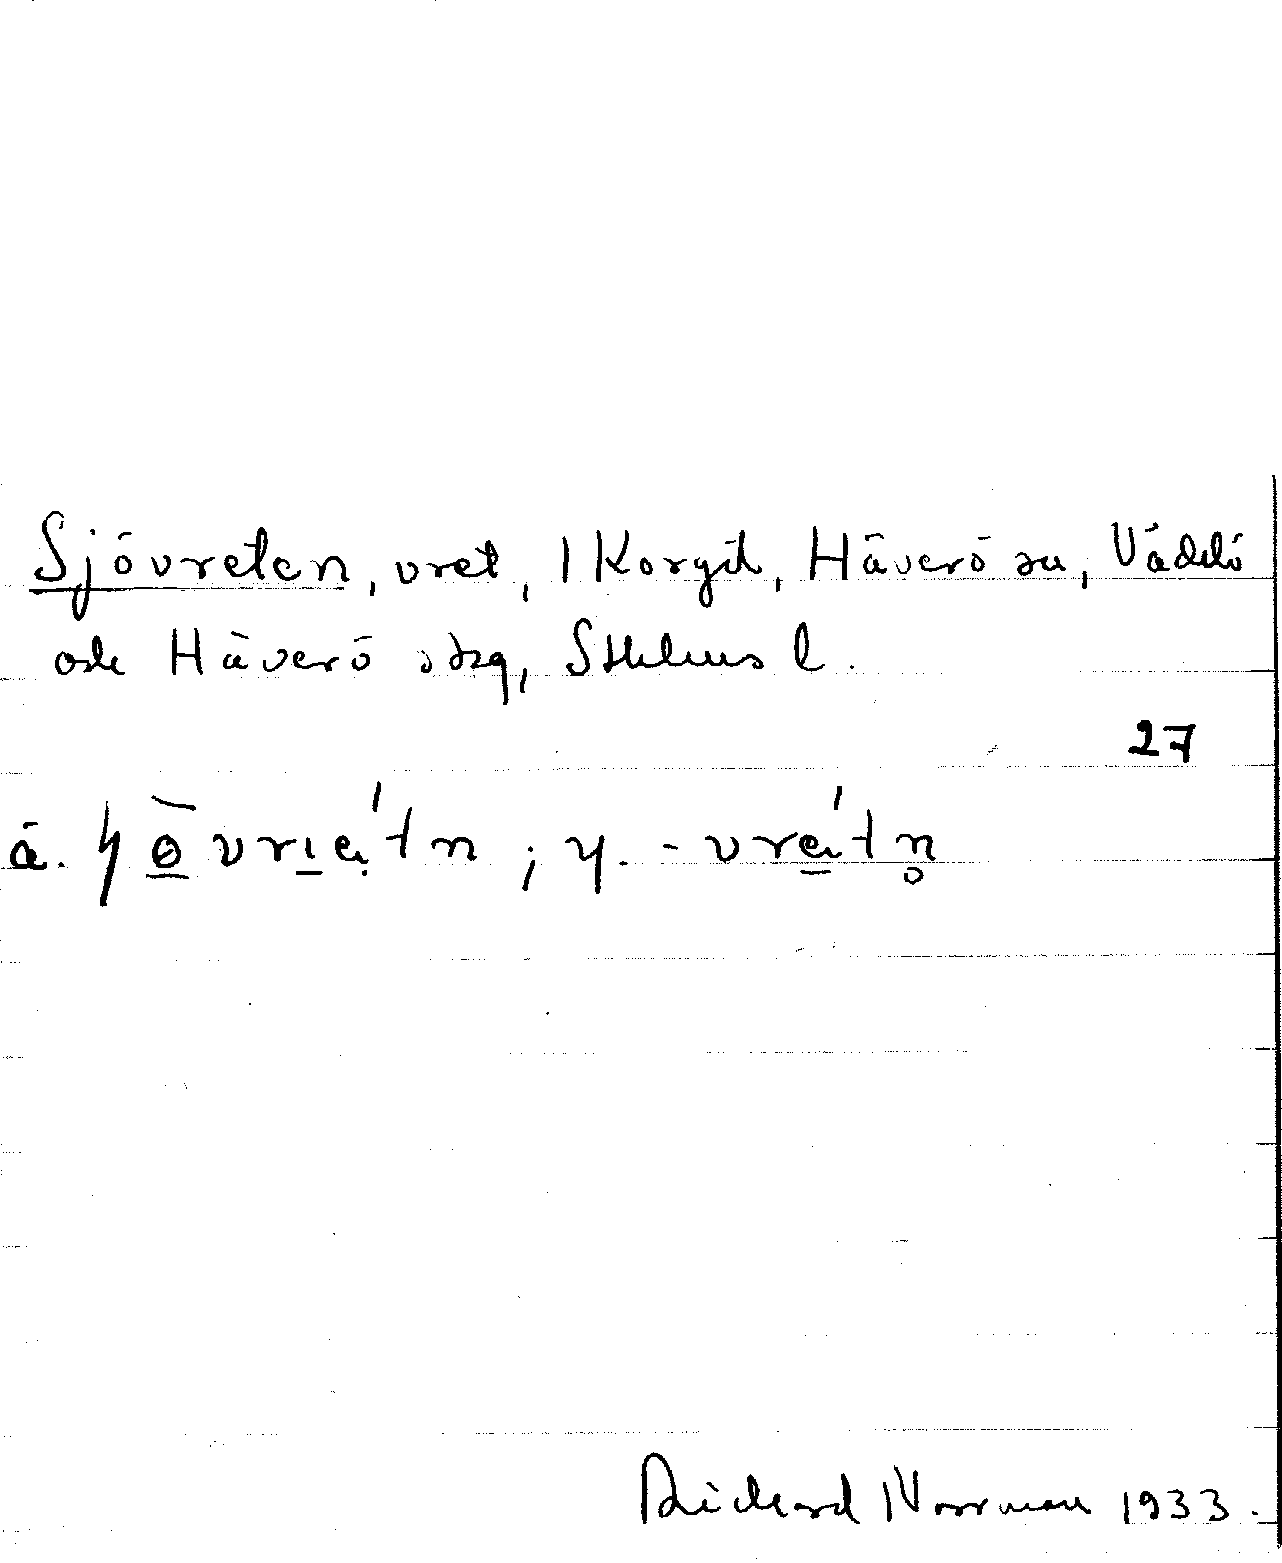 Sjövreten, vret, 1 Korgil, Häverö sn, Väddö
och Häverö skg, Sthlms l.
27
ä. vriet̄n ; y. -vretn̥
Rickard Norrman 1933.